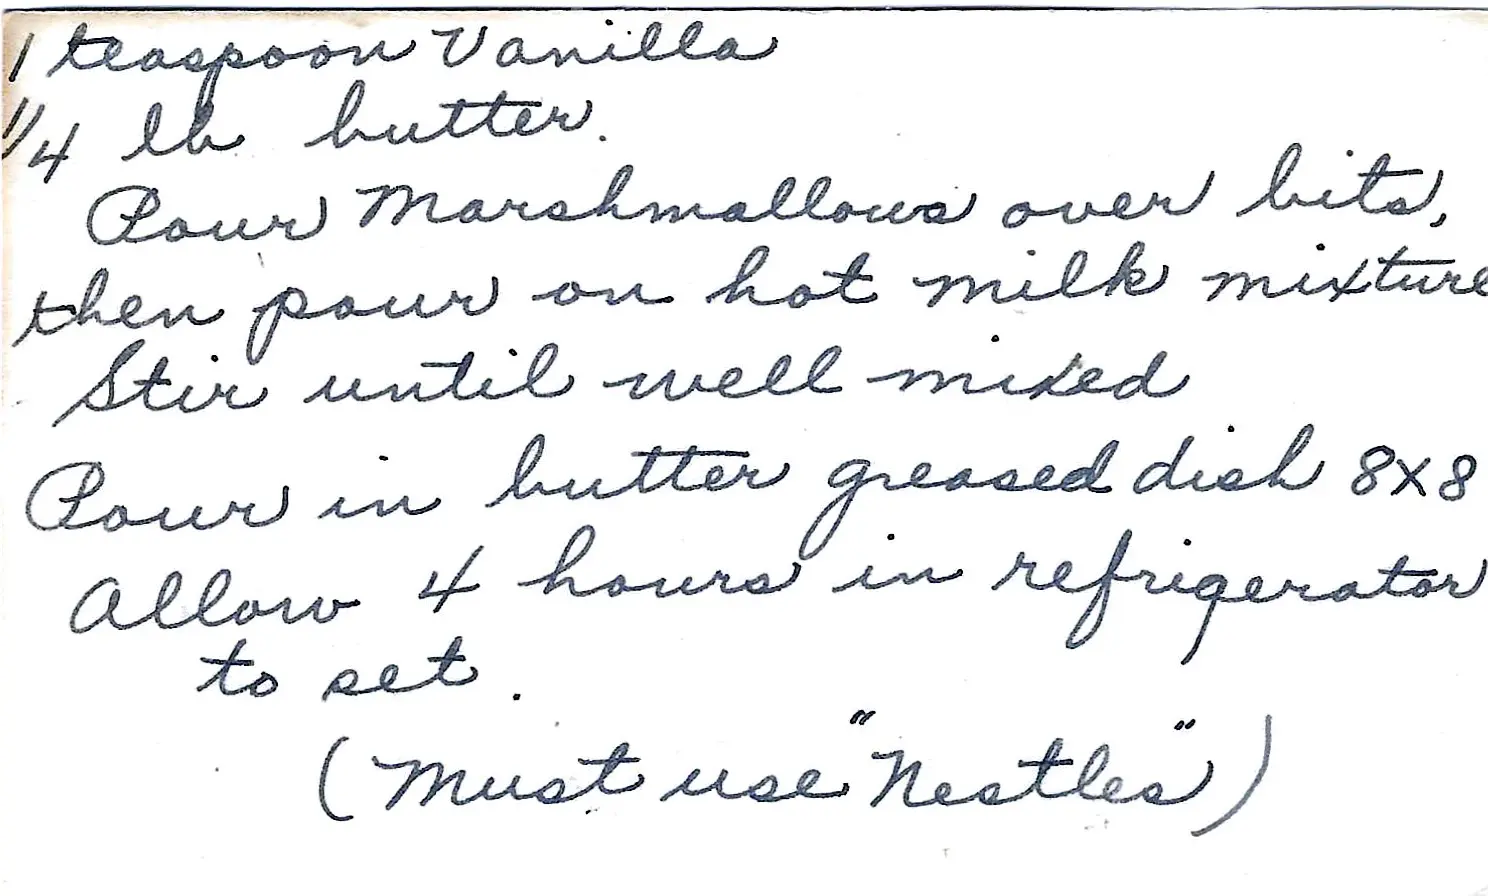 1 teaspoon Vanilla
1/4 lb butter.
Pour Marshmallows over bits,
then pour on hot milk mixture
Stir until well mixed
Pour in butter greased dish 8x8
Allow 4 hours in refrigerator
to set.
(Must use "Nestles")